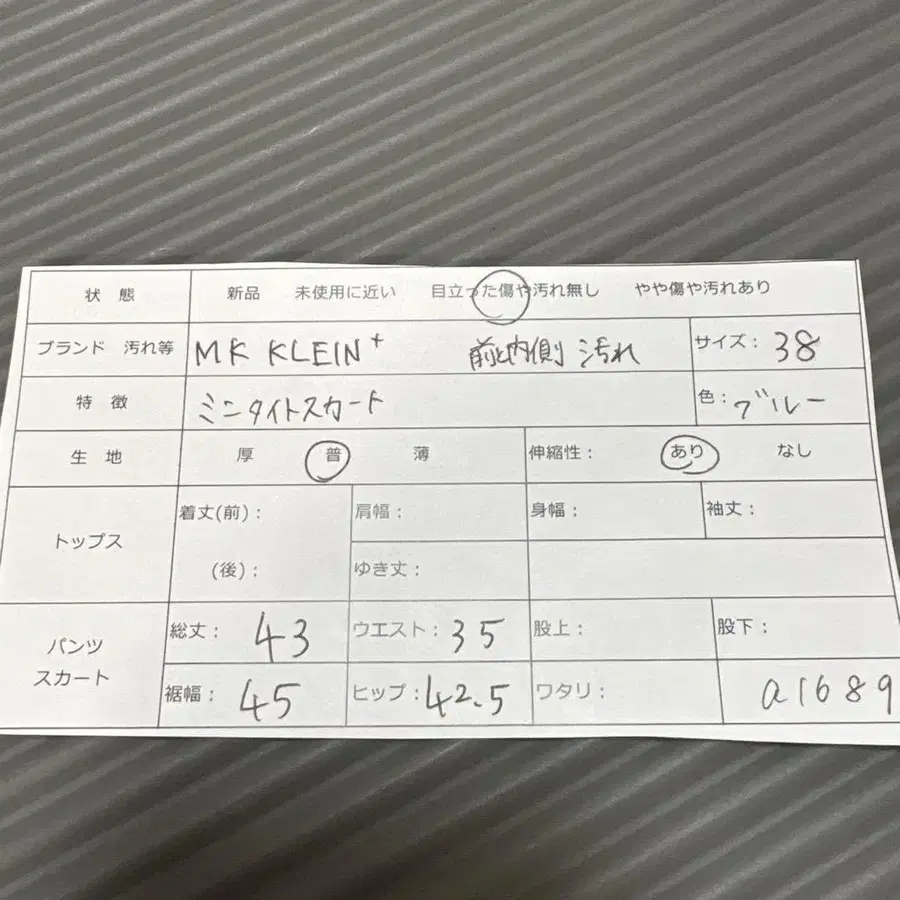 状 態 新品 未使用に近い 目立った傷や汚れ無し やや傷や汚れあり
ブランド 汚れ等 MK KLEIN+ 前と内側 汚れ サイズ: 38
特 徴 ミニタイトスカート 色: ブルー
生 地 厚 普 薄 伸縮性: あり なし
トップス 着丈(前): 肩幅: 身幅: 袖丈:
(後): ゆき丈:
パンツ スカート 総丈: 43 ウエスト: 35 股上: 股下:
裾幅: 45 ヒップ: 42.5 ワタリ: a1689